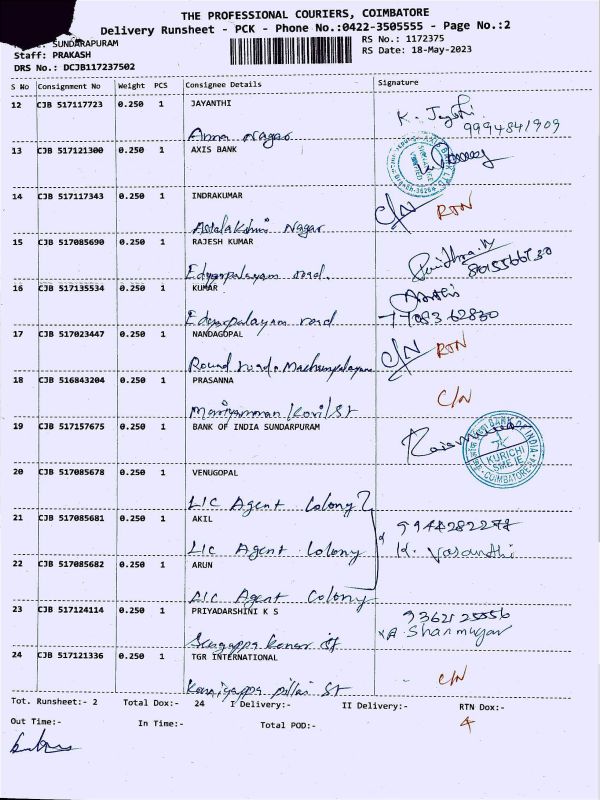 THE PROFESSIONAL COURIERS, COIMBATORE
Delivery Runsheet - PCK - Phone No.:0422-3505555 - Page No.:2
SUNDARAPURAM
RS No.: 1172375
Staff: PRAKASH
RS Date: 18-May-2023
DRS No.: DCJB117237502
S No Consignment No Weight PCS Consignee Details Signature
12 CJB 517117723 0.250 1 JAYANTHI
K. Jayanthi
9994841909
Anna Nagar
13 CJB 517121300 0.250 1 AXIS BANK
14 CJB 517117343 0.250 1 INDRAKUMAR
C/N RTN
Astalakshmi Nagar
15 CJB 517085690 0.250 1 RAJESH KUMAR
Edayarpalayam road.
16 CJB 517135534 0.250 1 KUMAR
77083 62830
Edayarpalayam road
17 CJB 517023447 0.250 1 NANDAGOPAL
C/N RTN
Round road Machampalayam
18 CJB 516843204 0.250 1 PRASANNA
C/N
Mariyamman Kovil St
19 CJB 517157675 0.250 1 BANK OF INDIA SUNDARPURAM
BANK OF INDIA
KURICHI
COIMBATORE
20 CJB 517085678 0.250 1 VENUGOPAL
LIC Agent Colony
21 CJB 517085681 0.250 1 AKIL
K. Vasanthi
LIC Agent Colony
22 CJB 517085682 0.250 1 ARUN
LIC Agent Colony
23 CJB 517124114 0.250 1 PRIYADARSHINI K S
A Shanmugar
24 CJB 517121336 0.250 1 TGR INTERNATIONAL
C/N
Kanniyappa pillai St
Tot. Runsheet:- 2 Total Dox:- 24 I Delivery:- II Delivery:- RTN Dox:-
4
Out Time:- In Time:- Total POD:-